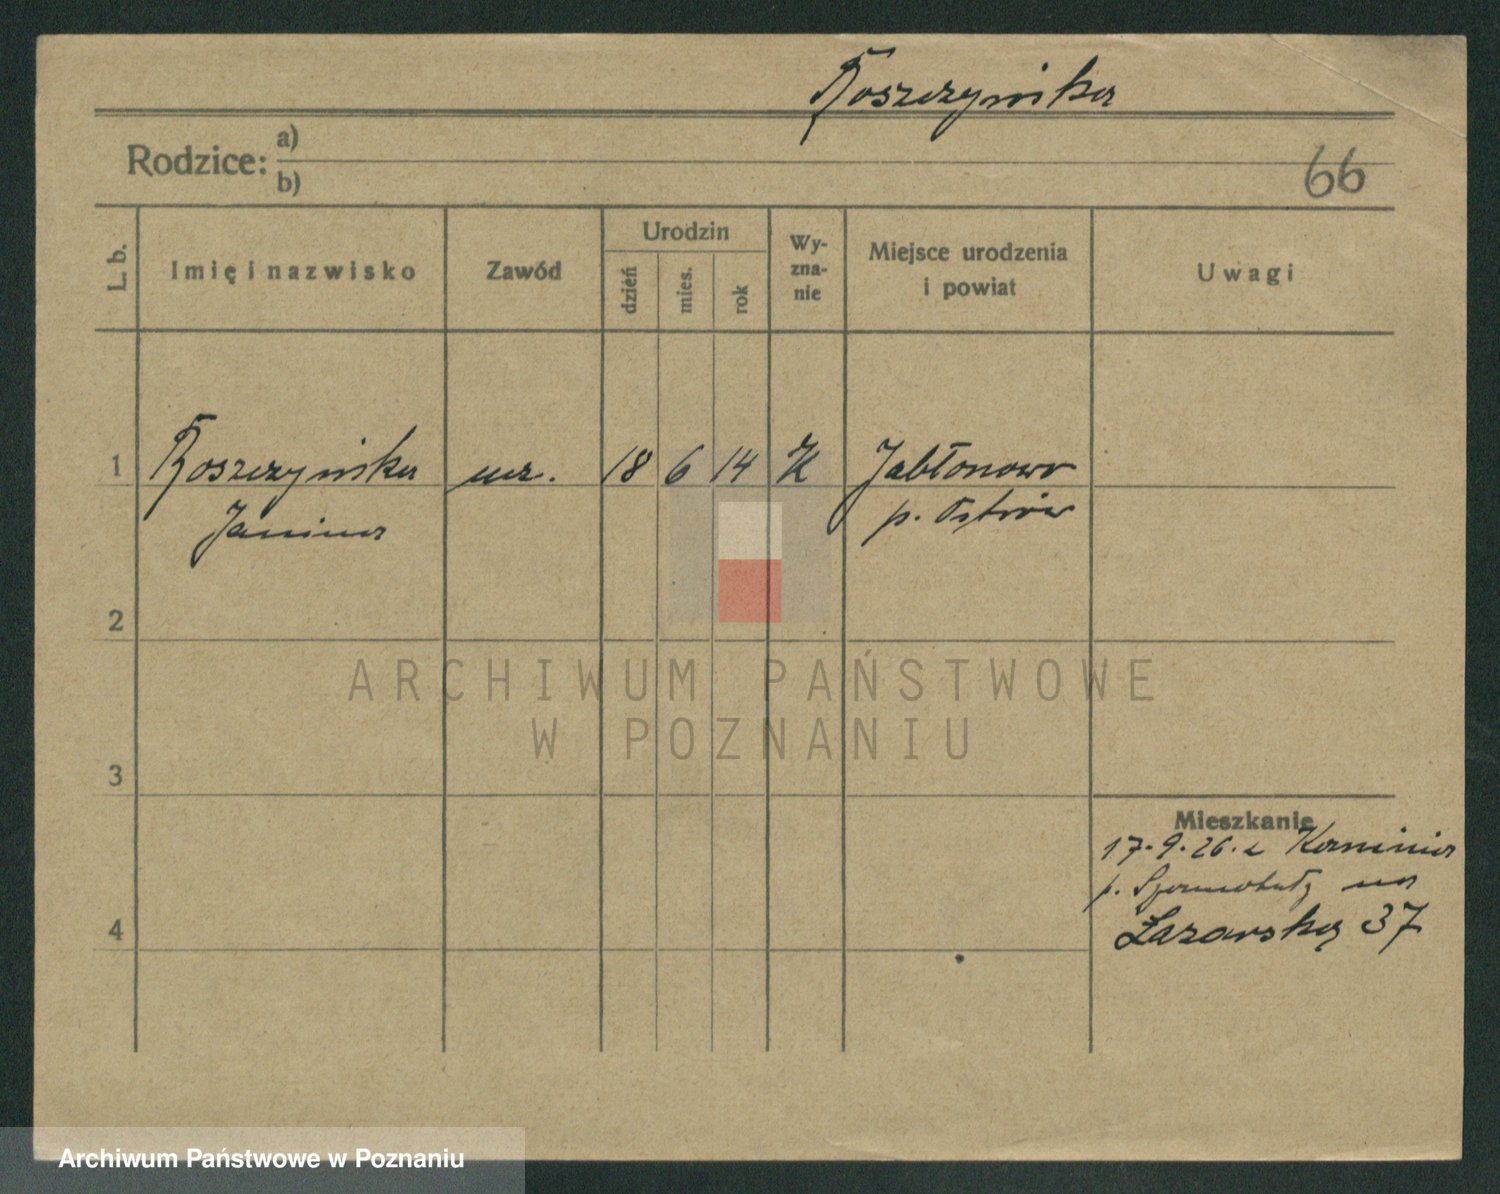 Roszczynska
Rodzice: a)
b)
66
L. b.
Imię i nazwisko
Zawód
Urodzin
dzień
mies.
rok
Wy-
zna-
nie
Miejsce urodzenia
i powiat
Uwagi
1 Roszczynska ucz. 18 6 14 K Jabłonowo
Janina p. Ostrów
2
3
4
ARCHIWUM PAŃSTWOWE
W POZNANIU
Mieszkanie
17.9.26. z
p. na
Łazarską 37
Archiwum Państwowe w Poznaniu